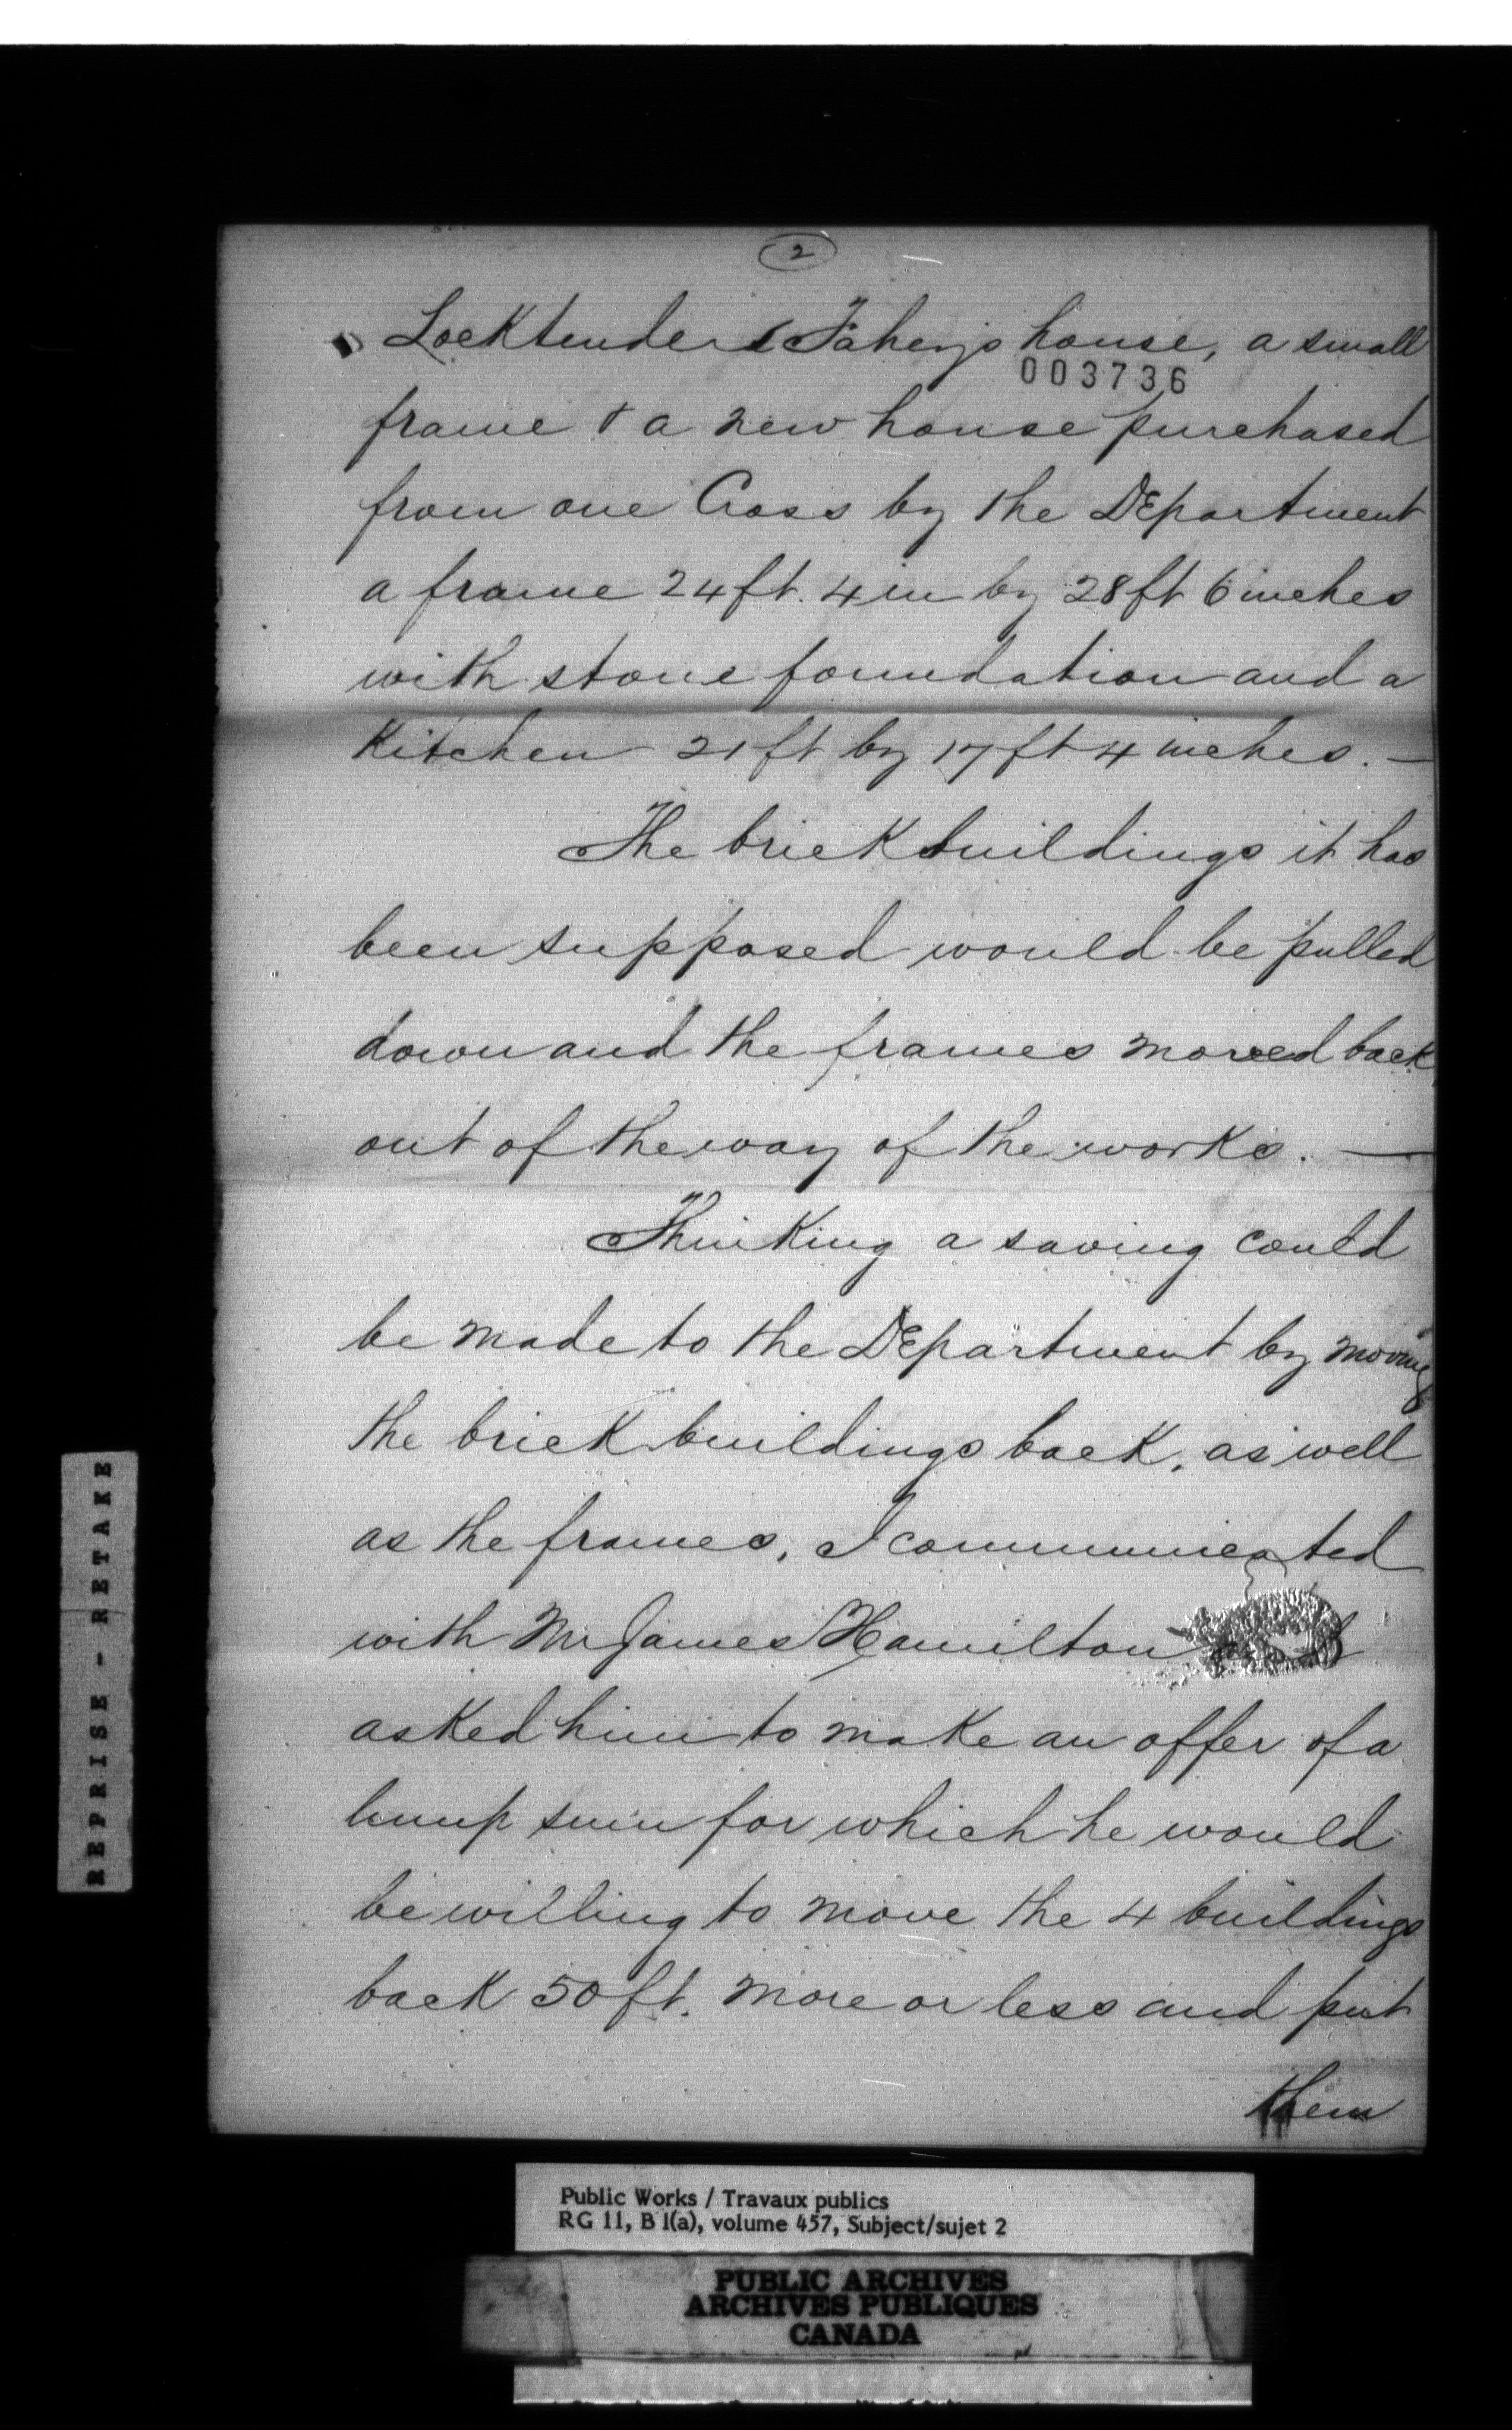 2
Locktender Fahey's house, a small
003736
frame & a new house purchased
from one Cross by the DEpartment
a frame 24 ft. 4 in by 28 ft 6 inches
with stone foundation and a
Kitchen 21 ft by 17 ft 4 inches. —
The brick buildings it has
been supposed would be pulled
down and the frames moved back
out of the way of the works. —
Thinking a saving could
be made to the DEpartment by moving
the brick buildings back, as well
as the frames, I communicated
with Mr James Hamilton and
asked him to make an offer of a
lump sum for which he would
be willing to move the 4 buildings
back 50 ft. more or less and put
them
REPRISE - RETAKE
Public Works / Travaux publics
RG 11, B 1(a), volume 457, Subject/sujet 2
PUBLIC ARCHIVES
ARCHIVES PUBLIQUES
CANADA